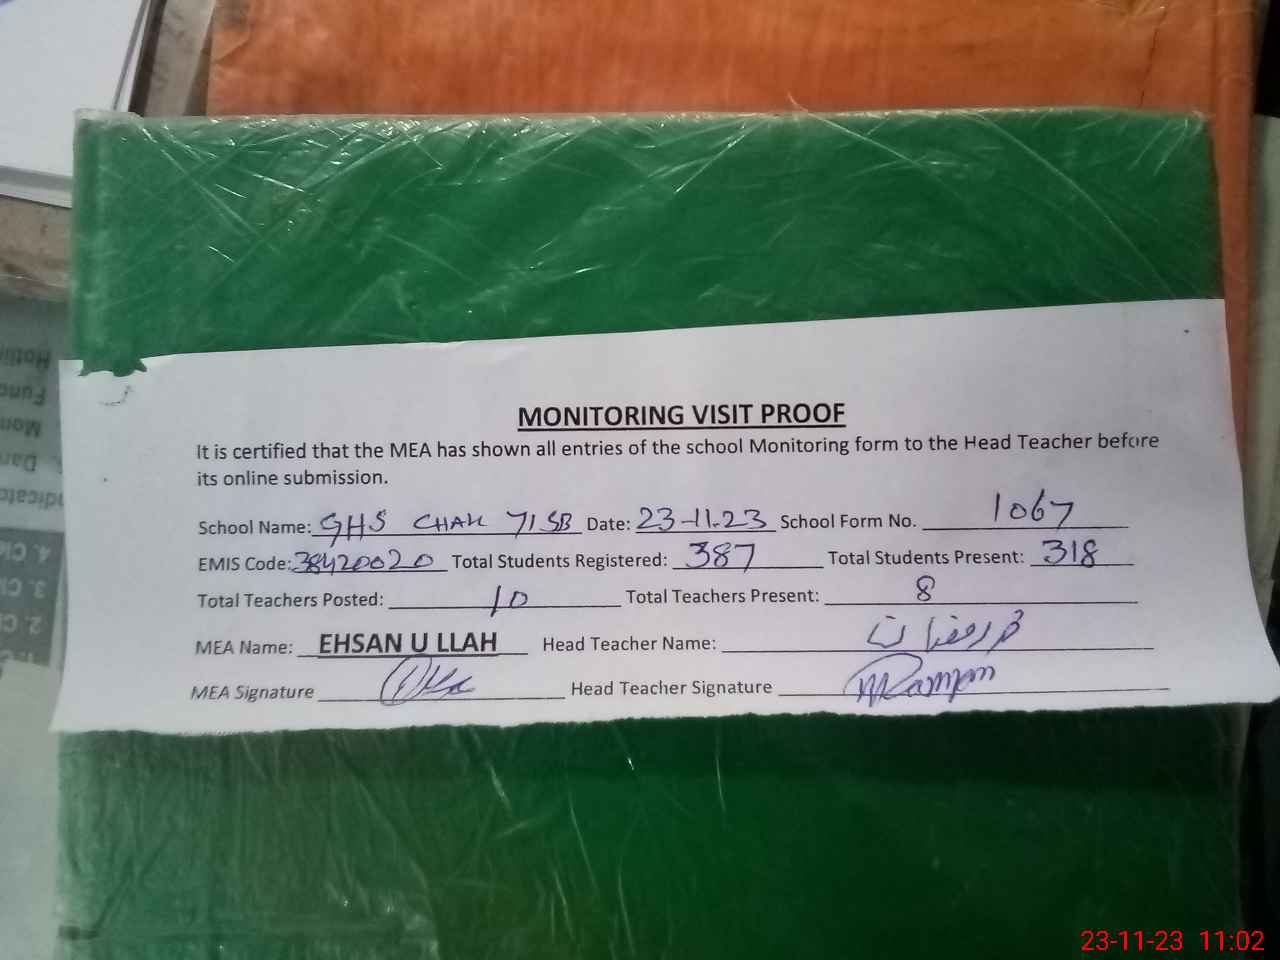 MONITORING VISIT PROOF
It is certified that the MEA has shown all entries of the school Monitoring form to the Head Teacher before
its online submission.
School Name: GHS CHAK 71 SB Date: 23-11-23 School Form No. 1067
EMIS Code: 38420020 Total Students Registered: 387 Total Students Present: 318
Total Teachers Posted: 10 Total Teachers Present: 8
MEA Name: EHSAN U LLAH Head Teacher Name: محمد رمضان
MEA Signature Head Teacher Signature MRamzan
23-11-23 11:02